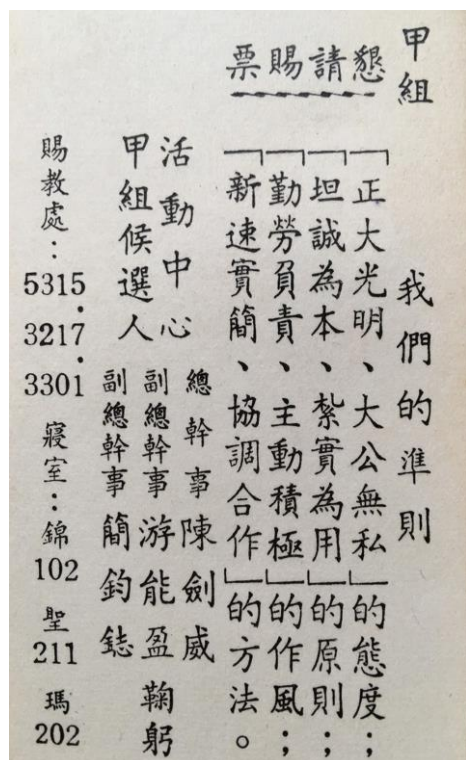 甲組 我們的準則
懇請賜票
「正大光明、大公無私」的態度；
「坦誠為本、紮實為用」的原則；
「勤勞負責、主動積極」的作風；
「新速實簡、協調合作」的方法。
活動中心
甲組候選人
總幹事 陳劍威
副總幹事 游能盈 鞠躬
副總幹事 簡鈞鋕
賜教處：5315．3217．3301 寢室：錦102 聖211 瑪202